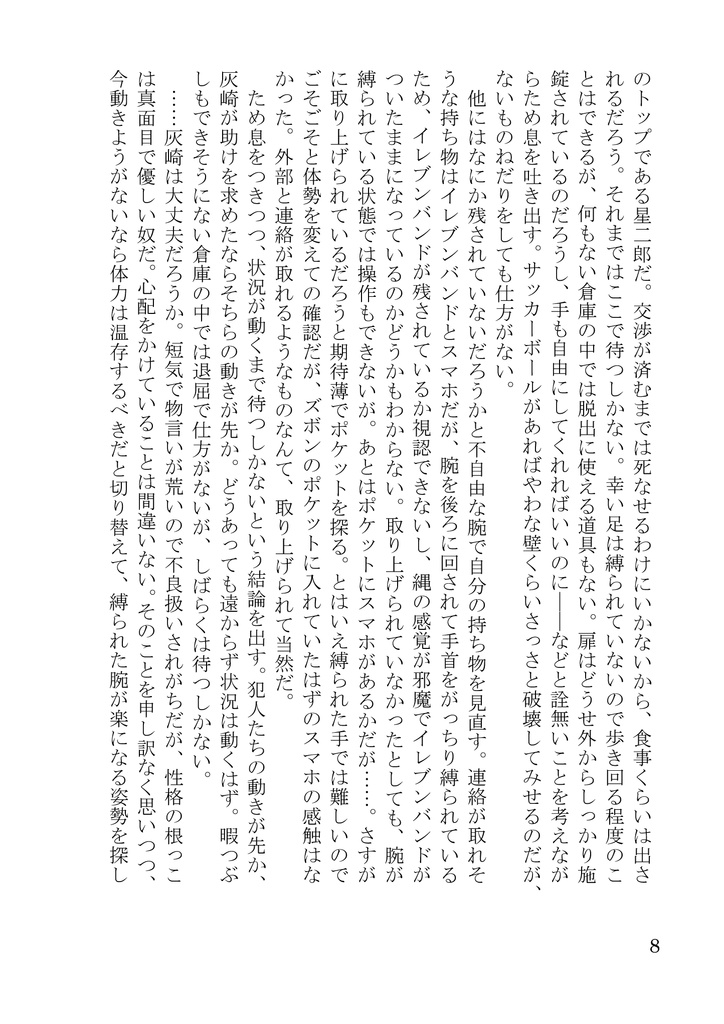 のトップである星二郎だ。交渉が済むまでは死なせるわけにいかないから、食事くらいは出さ
れるだろう。それまではここで待つしかない。幸い足は縛られていないので歩き回る程度のこ
とはできるが、何もない倉庫の中では脱出に使える道具もない。扉はどうせ外からしっかり施
錠されているのだろうし、手も自由にしてくれればいいのに――などと詮無いことを考えなが
らため息を吐き出す。サッカーボールがあればやわな壁くらいさっさと破壊してみせるのだが、
ないものねだりをしても仕方がない。
他にはなにか残されていないだろうかと不自由な腕で自分の持ち物を見直す。連絡が取れそ
うな持ち物はイレブンバンドとスマホだが、腕を後ろに回されて手首をがっちり縛られている
ため、イレブンバンドが残されているか視認できないし、縄の感覚が邪魔でイレブンバンドが
ついたままになっているのかどうかもわからない。取り上げられていなかったとしても、腕が
縛られている状態では操作もできないが。あとはポケットにスマホがあるかだが……。さすが
に取り上げられているだろうと期待薄でポケットを探る。とはいえ縛られた手では難しいので
ごそごそと体勢を変えての確認だが、ズボンのポケットに入れていたはずのスマホの感触はな
かった。外部と連絡が取れるようなものなんて、取り上げられて当然だ。
ため息をつきつつ、状況が動くまで待つしかないという結論を出す。犯人たちの動きが先か、
灰崎が助けを求めたならそちらの動きが先か。どうあっても遠からず状況は動くはず。暇つぶ
しもできそうにない倉庫の中では退屈で仕方がないが、しばらくは待つしかない。
……灰崎は大丈夫だろうか。短気で物言いが荒いので不良扱いされがちだが、性格の根っこ
は真面目で優しい奴だ。心配をかけていることは間違いない。そのことを申し訳なく思いつつ、
今動きようがないなら体力は温存するべきだと切り替えて、縛られた腕が楽になる姿勢を探し
8